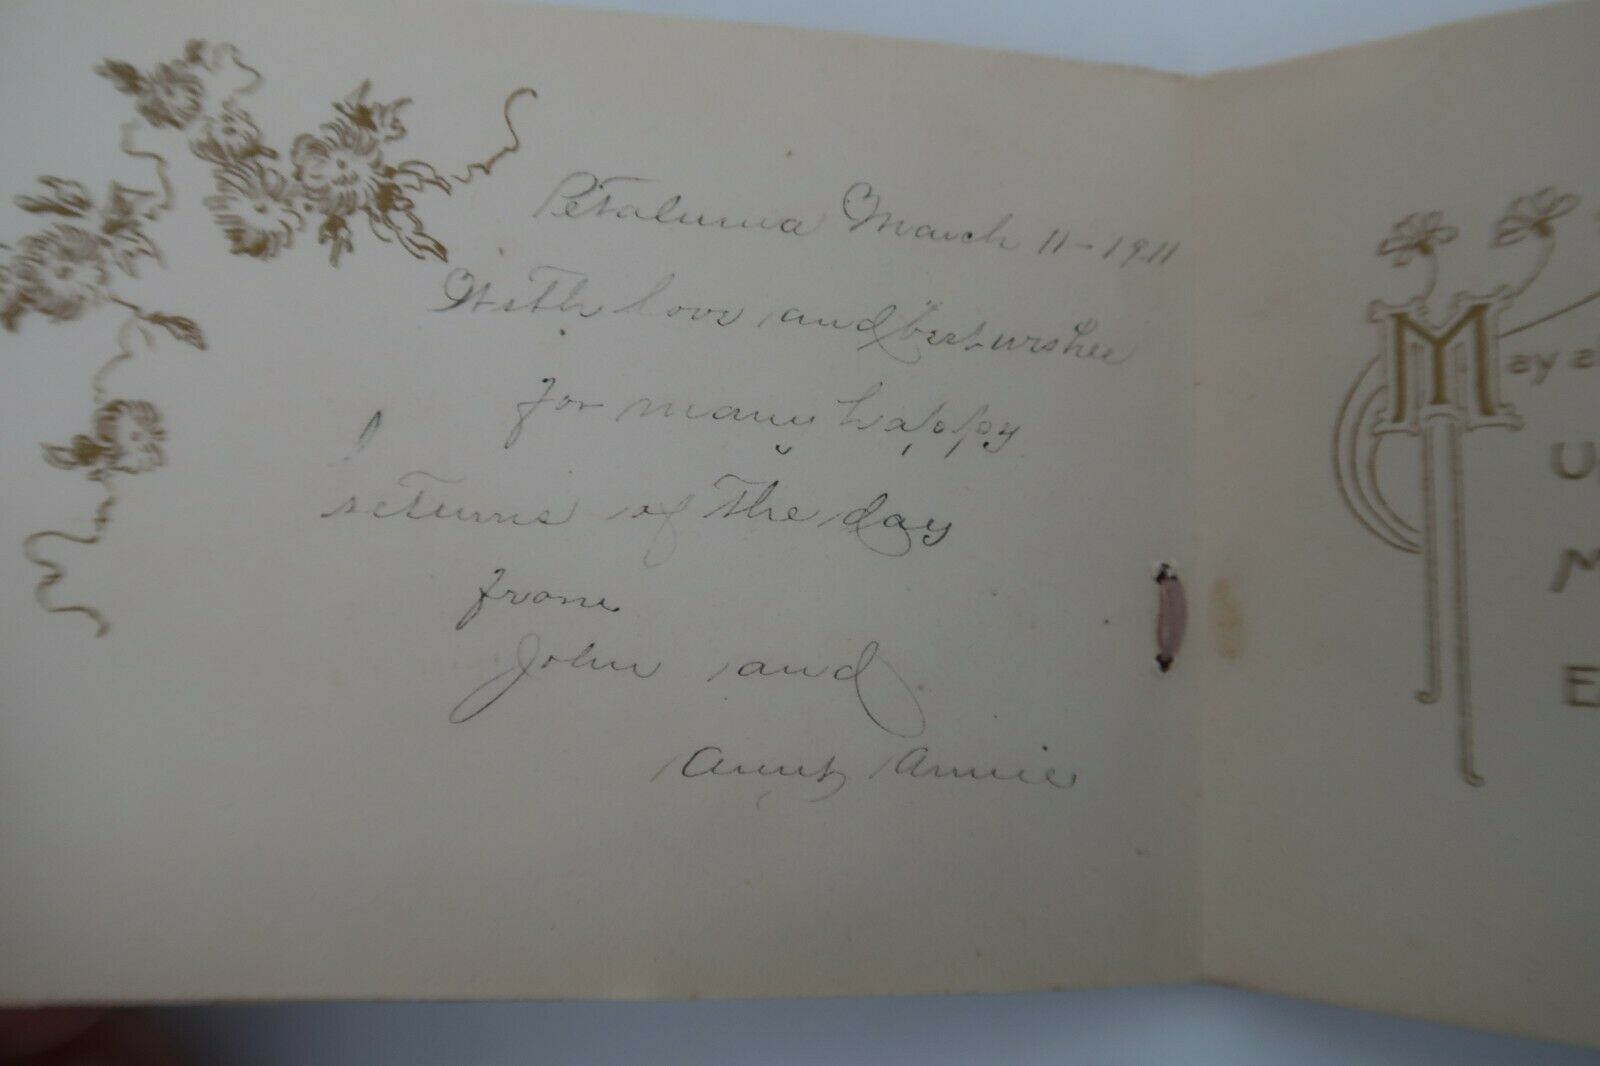 Petaluma March 11-1911
With love and best wishes
for many happy
returns of the day
from
John and
Aunt Annie
May a
U
M
E